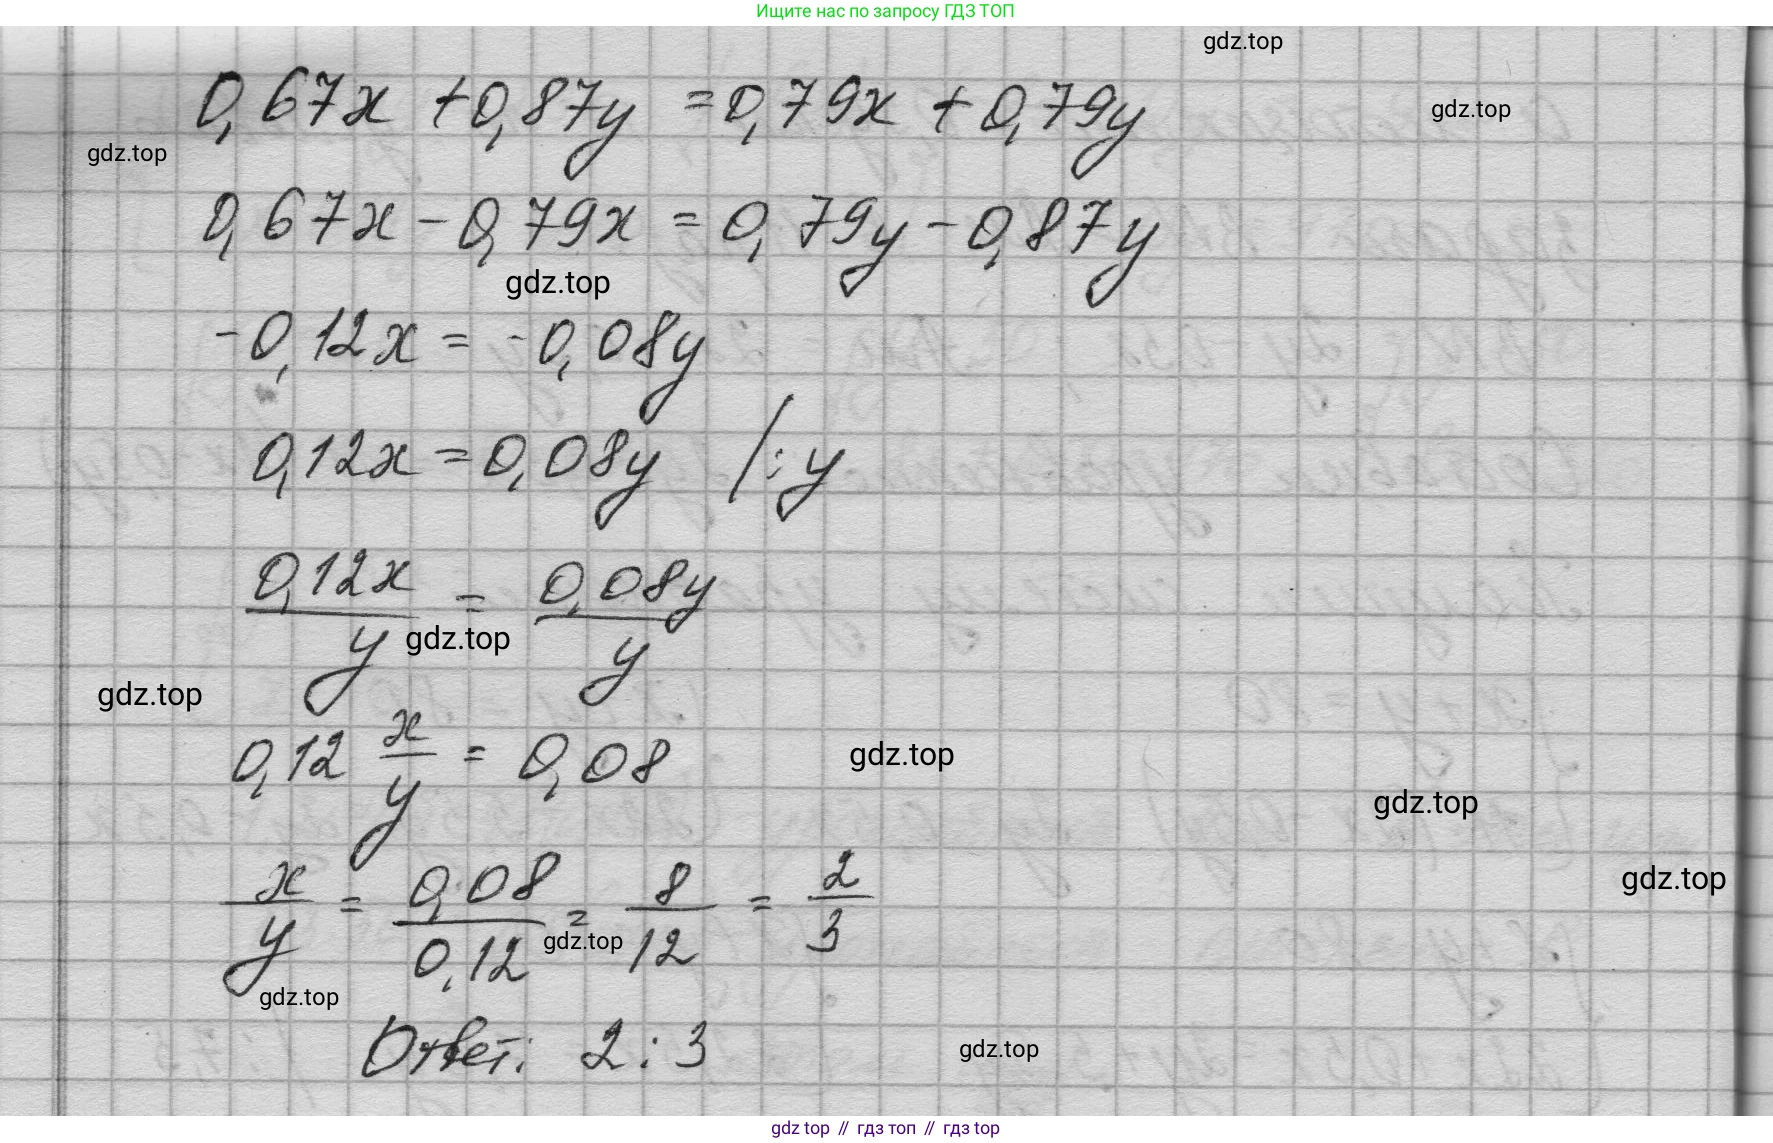 Ищите нас по запросу ГДЗ ТОП
gdz.top
0,67x + 0,87y = 0,79x + 0,79y
gdz.top
gdz.top
0,67x - 0,79x = 0,79y - 0,87y
gdz.top
-0,12x = -0,08y
0,12x = 0,08y /:y
0,12x/y = 0,08y/y
gdz.top
gdz.top
0,12 x/y = 0,08
gdz.top
gdz.top
gdz.top
x/y = 0,08/0,12 = 8/12 = 2/3
gdz.top
gdz.top
Ответ: 2 : 3
gdz.top
gdz top // гдз топ // гдз top